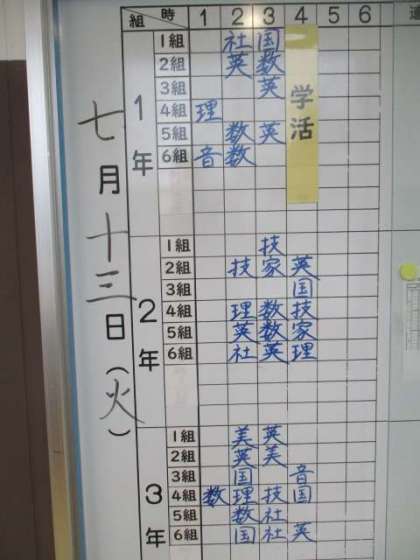 七月十三日(火)
組 時 1 2 3 4 5 6
1年
1組 社 国
2組 英 数
3組 英
4組 理
5組 数 英
6組 音 数
学活
2年
1組 技
2組 技 家 英
3組 国
4組 理 数 技
5組 英 数 家
6組 社 英 理
3年
1組 美 英
2組 英 美
3組 国 音
4組 数 理 技 国
5組 数 社
6組 国 社 英